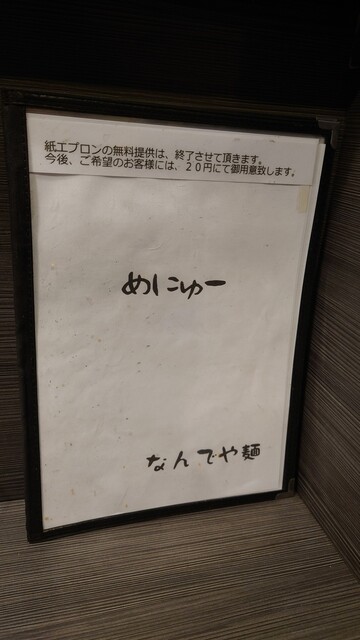 紙エプロンの無料提供は、終了させて頂きます。
今後、ご希望のお客様には、２０円にて御用意致します。
めにゅー
なんでや麺